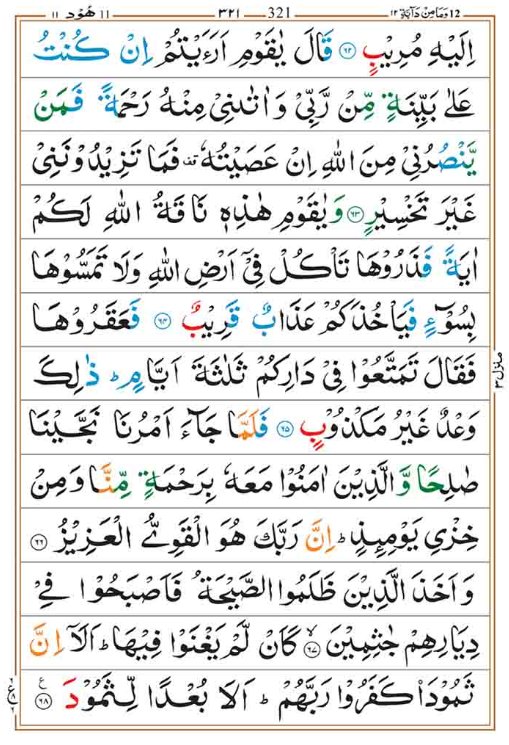 12 وما من دآبة ١٢ 321 ٣٢١ 11 هود ١١
اِلَيْهِ مُرِيْبٍ ۝٦٢ قَالَ يٰقَوْمِ اَرَءَيْتُمْ اِنْ كُنْتُ
عَلٰى بَيِّنَةٍ مِّنْ رَّبِّىْ وَاٰتٰىنِىْ مِنْهُ رَحْمَةً فَمَنْ
يَّنْصُرُنِىْ مِنَ اللّٰهِ اِنْ عَصَيْتُهٗ فَمَا تَزِيْدُوْنَنِىْ
غَيْرَ تَخْسِيْرٍ ۝٦٣ وَيٰقَوْمِ هٰذِهٖ نَاقَةُ اللّٰهِ لَكُمْ
اٰيَةً فَذَرُوْهَا تَاْكُلْ فِىْٓ اَرْضِ اللّٰهِ وَلَا تَمَسُّوْهَا
بِسُوْٓءٍ فَيَاْخُذَكُمْ عَذَابٌ قَرِيْبٌ ۝٦٤ فَعَقَرُوْهَا
فَقَالَ تَمَتَّعُوْا فِىْ دَارِكُمْ ثَلٰثَةَ اَيَّامٍ ؕ ذٰلِكَ
وَعْدٌ غَيْرُ مَكْذُوْبٍ ۝٦٥ فَلَمَّا جَآءَ اَمْرُنَا نَجَّيْنَا
صٰلِحًا وَّالَّذِيْنَ اٰمَنُوْا مَعَهٗ بِرَحْمَةٍ مِّنَّا وَمِنْ
خِزْىِ يَوْمِئِذٍ ؕ اِنَّ رَبَّكَ هُوَ الْقَوِىُّ الْعَزِيْزُ ۝٦٦
وَاَخَذَ الَّذِيْنَ ظَلَمُوا الصَّيْحَةُ فَاَصْبَحُوْا فِىْ
دِيَارِهِمْ جٰثِمِيْنَ ۝٦٧ۙ كَاَنْ لَّمْ يَغْنَوْا فِيْهَا ؕ اَلَاۤ اِنَّ
ثَمُوْدَا۟ كَفَرُوْا رَبَّهُمْ ؕ اَلَا بُعْدًا لِّثَمُوْدَ ۝٦٨ ع
منزل ٣